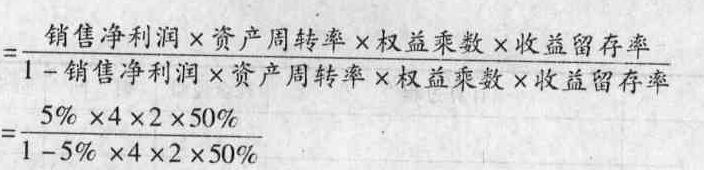 =销售净利润×资产周转率×权益乘数×收益留存率
1-销售净利润×资产周转率×权益乘数×收益留存率
=5%×4×2×50%
1-5%×4×2×50%